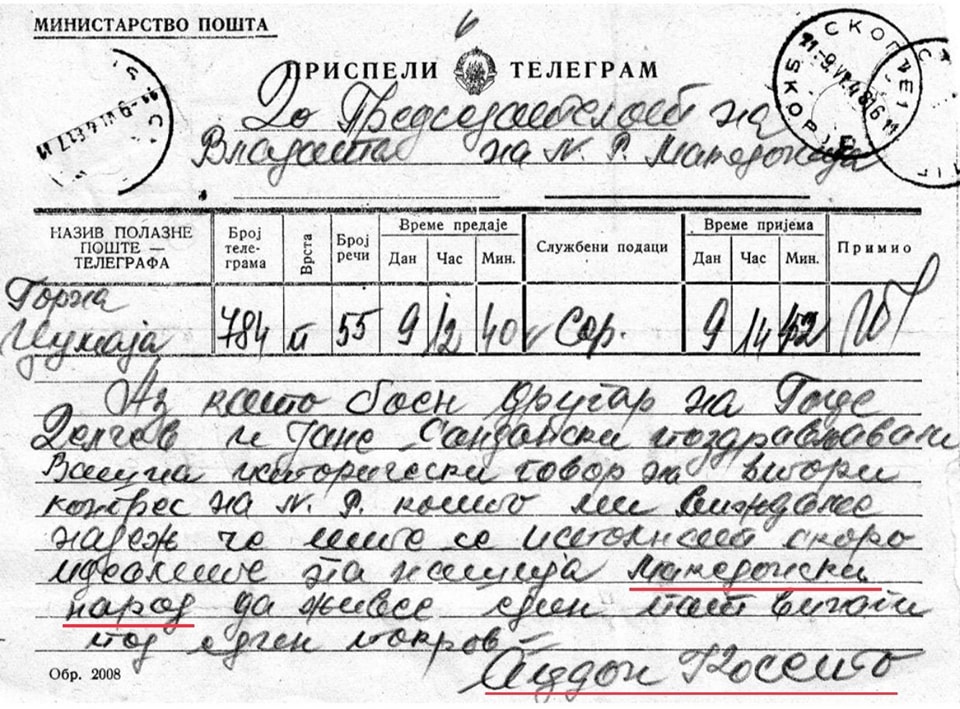 МИНИСТАРСТВО ПОШТА
6
ПРИСПЕЛИ ТЕЛЕГРАМ
До Председателот на
Владата на Н. Р. Македонија
СКОПЈЕ 1
СКОПЈЕ
НАЗИВ ПОЛАЗНЕ ПОШТЕ — ТЕЛЕГРАФА
Број теле-грама
Врста
Број речи
Време предаје
Дан Час Мин.
Службени подаци
Време пријема
Дан Час Мин.
Примио
Горна Џумаја 784 п 55 9 12 40 Сор. 9 14 52
Аз като боен другар на Гоце
Делчев и Јане Сандански поздравлавам
Вашиа исторически говор на втори
конгрес на Н. Ф. който ми вижданее
надеж че ште се исполнеат скоро
идеалите на нашија Македонски
народ да живее един път вигаги
под един покров =
Андон Косето
Обр. 2008